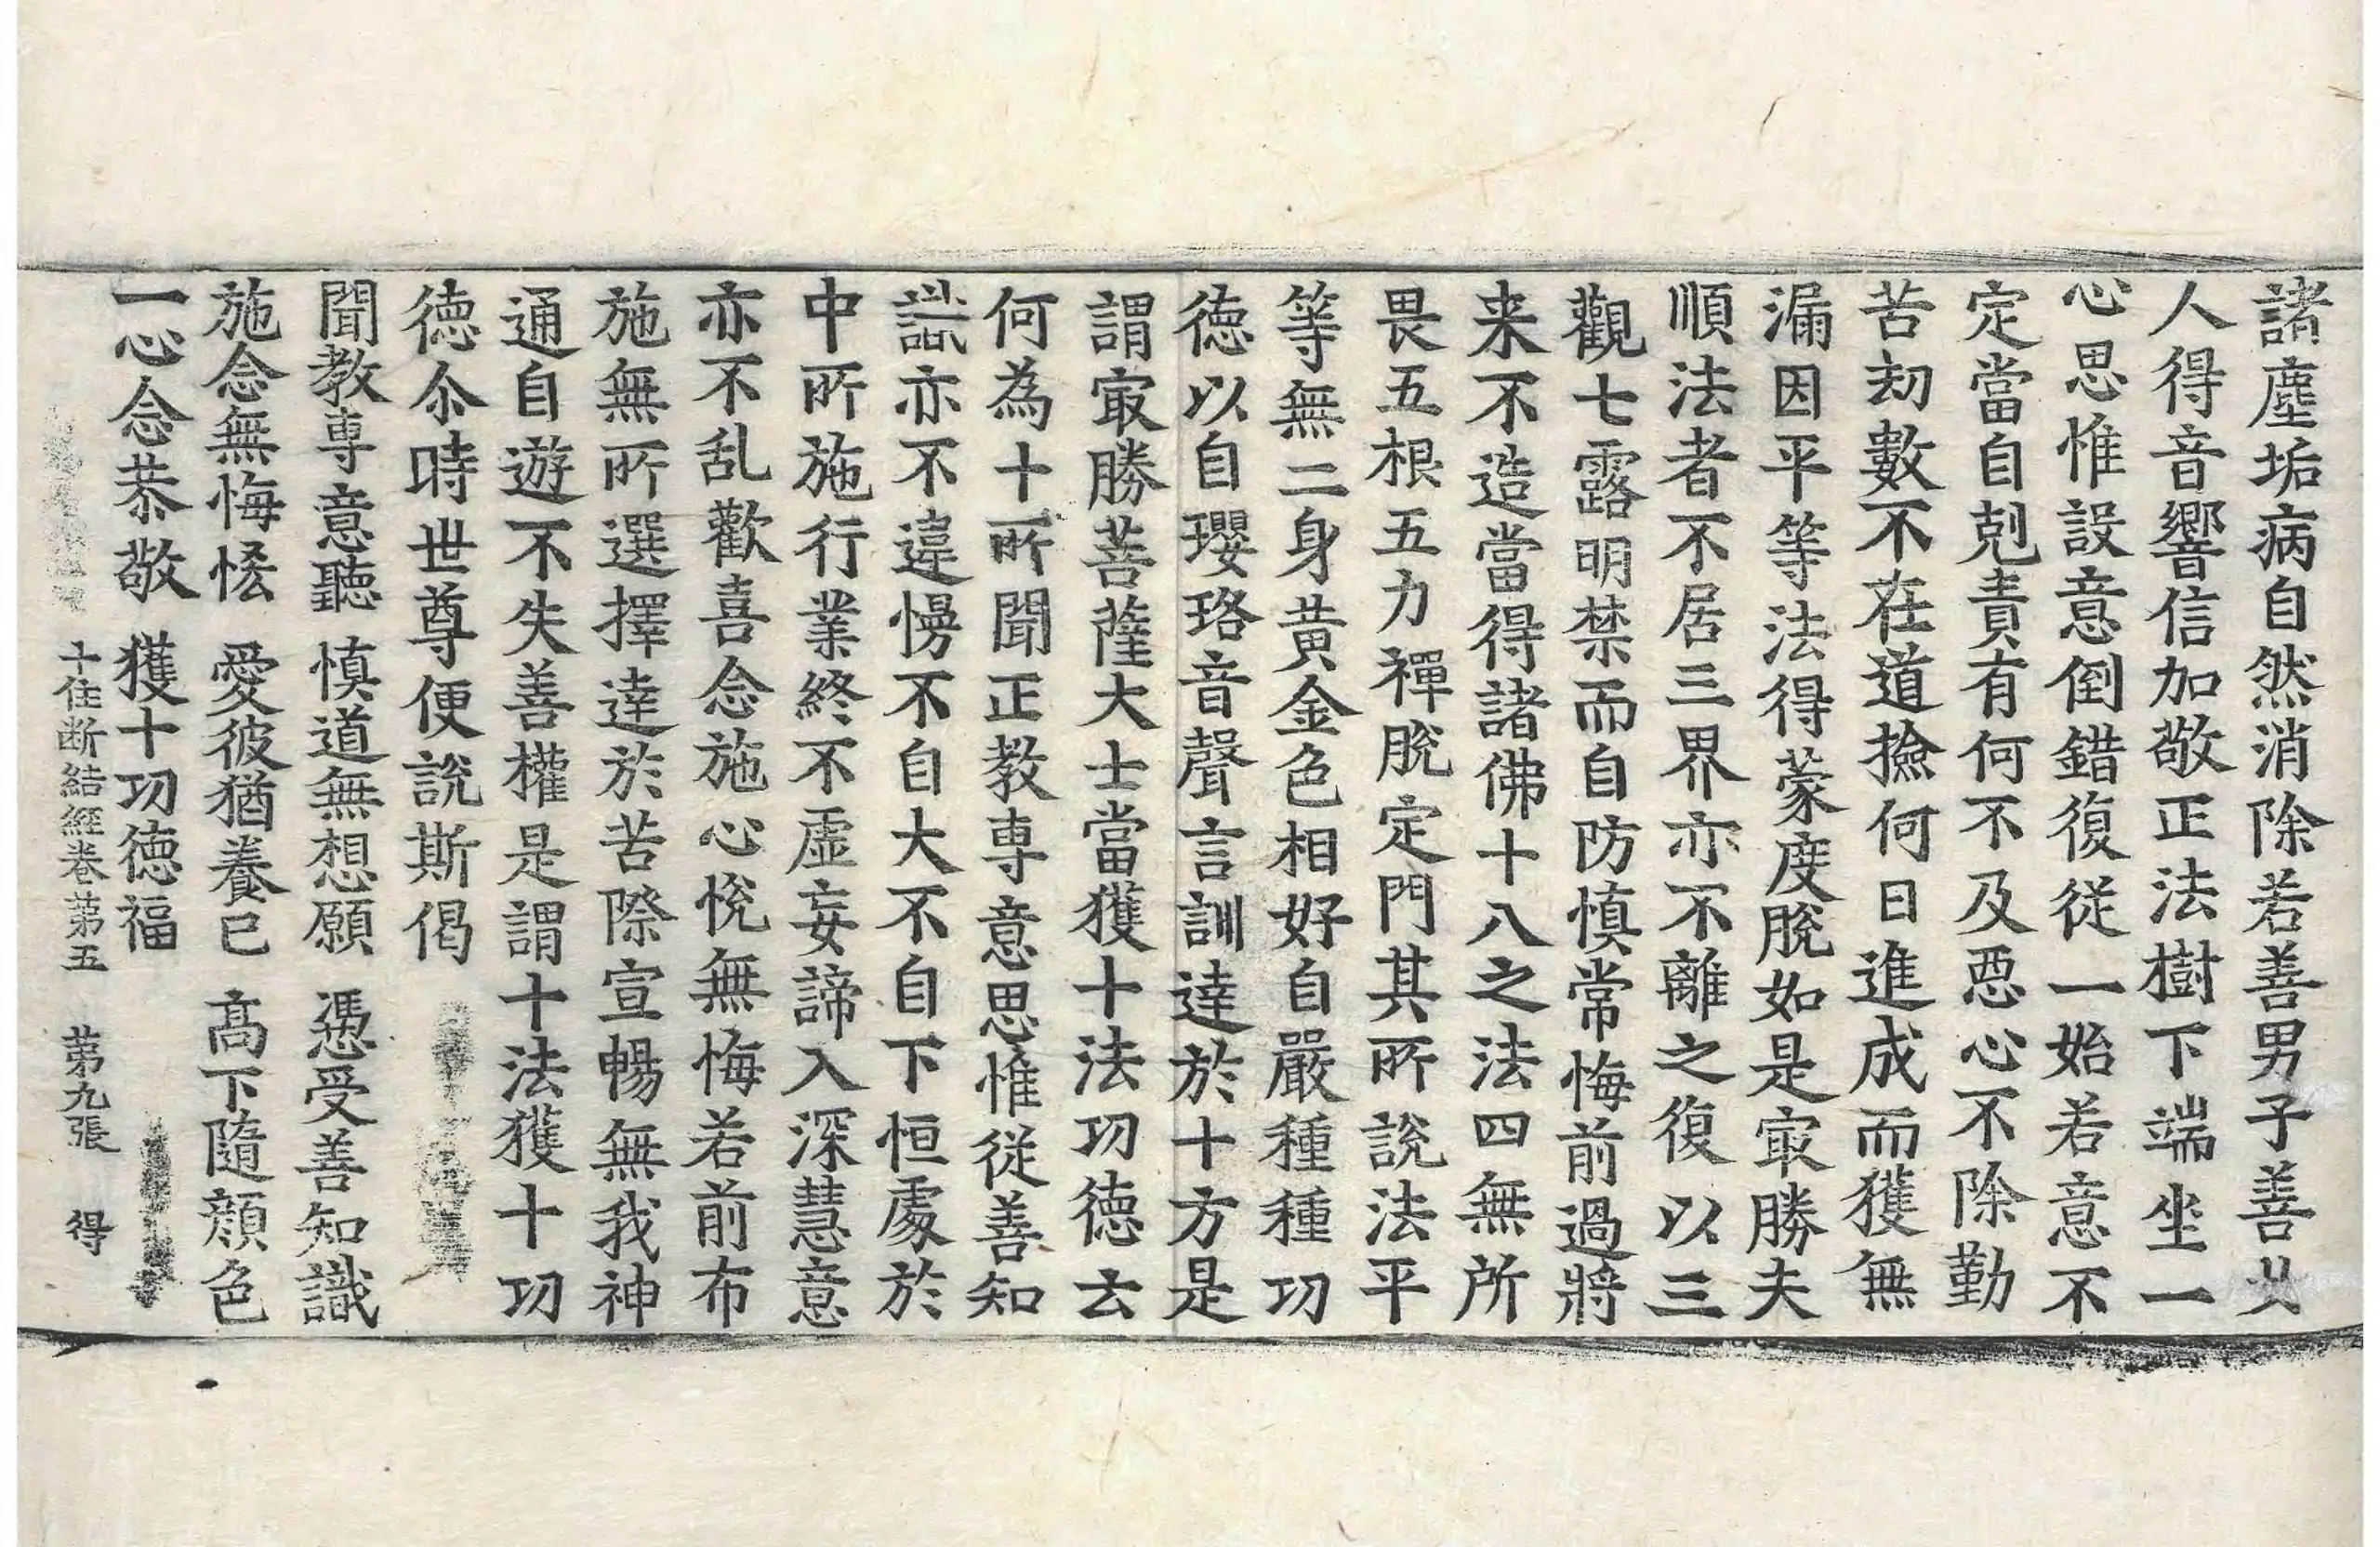 諸塵垢病自然消除若善男子善女
人得音響信加敬正法樹下端坐一
心思惟設意倒錯復従一始若意不
定當自剋責有何不及惡心不除勤
苦刧數不在道撿何日進成而獲無
漏因平等法得蒙度脫如是㝡勝夫
順法者不居三界亦不離之復以三
觀七露明禁而自防慎常悔前過將
来不造當得諸佛十八之法四無所
畏五根五力禪脫定門其所說法平
等無二身黄金色相好自嚴種種功
徳以自瓔珞音聲言訓達於十方是
謂㝡勝菩薩大士當獲十法功徳云
何為十所聞正教専意思惟從善知
識亦不違慢不自大不自下恒處於
中所施行業終不虛妄諦入深慧意
亦不乱歡喜念施心悅無悔若前布
施無所選擇達於苦際宣暢無我神
通自遊不失善權是謂十法獲十功
徳尒時世尊便說斯偈
聞教専意聽　慎道無想願　憑受善知識
施念無悔恡　愛彼猶養已　髙下隨顔色
一心念恭敬　獲十功徳福
十住断結經卷苐五　苐九張　得